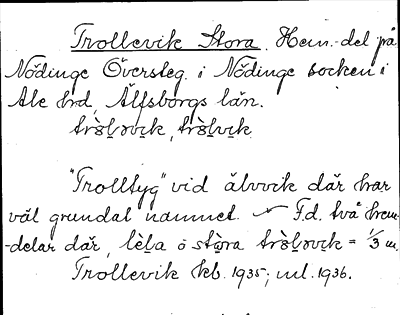 Trollevik Stora. Hem.-del på
Nödinge Översteg. i Nödinge socken i
Ale hrd, Älfsborgs län.
tròl̥əvik, tròl̥vik
"Trolltyg" vid älvvik där har
väl grundat namnet. F.d. två hem-
-delar där, lèl̥a o stòra tròl̥əvik = 1/3 m
Trollevik kb. 1935; ml. 1936.